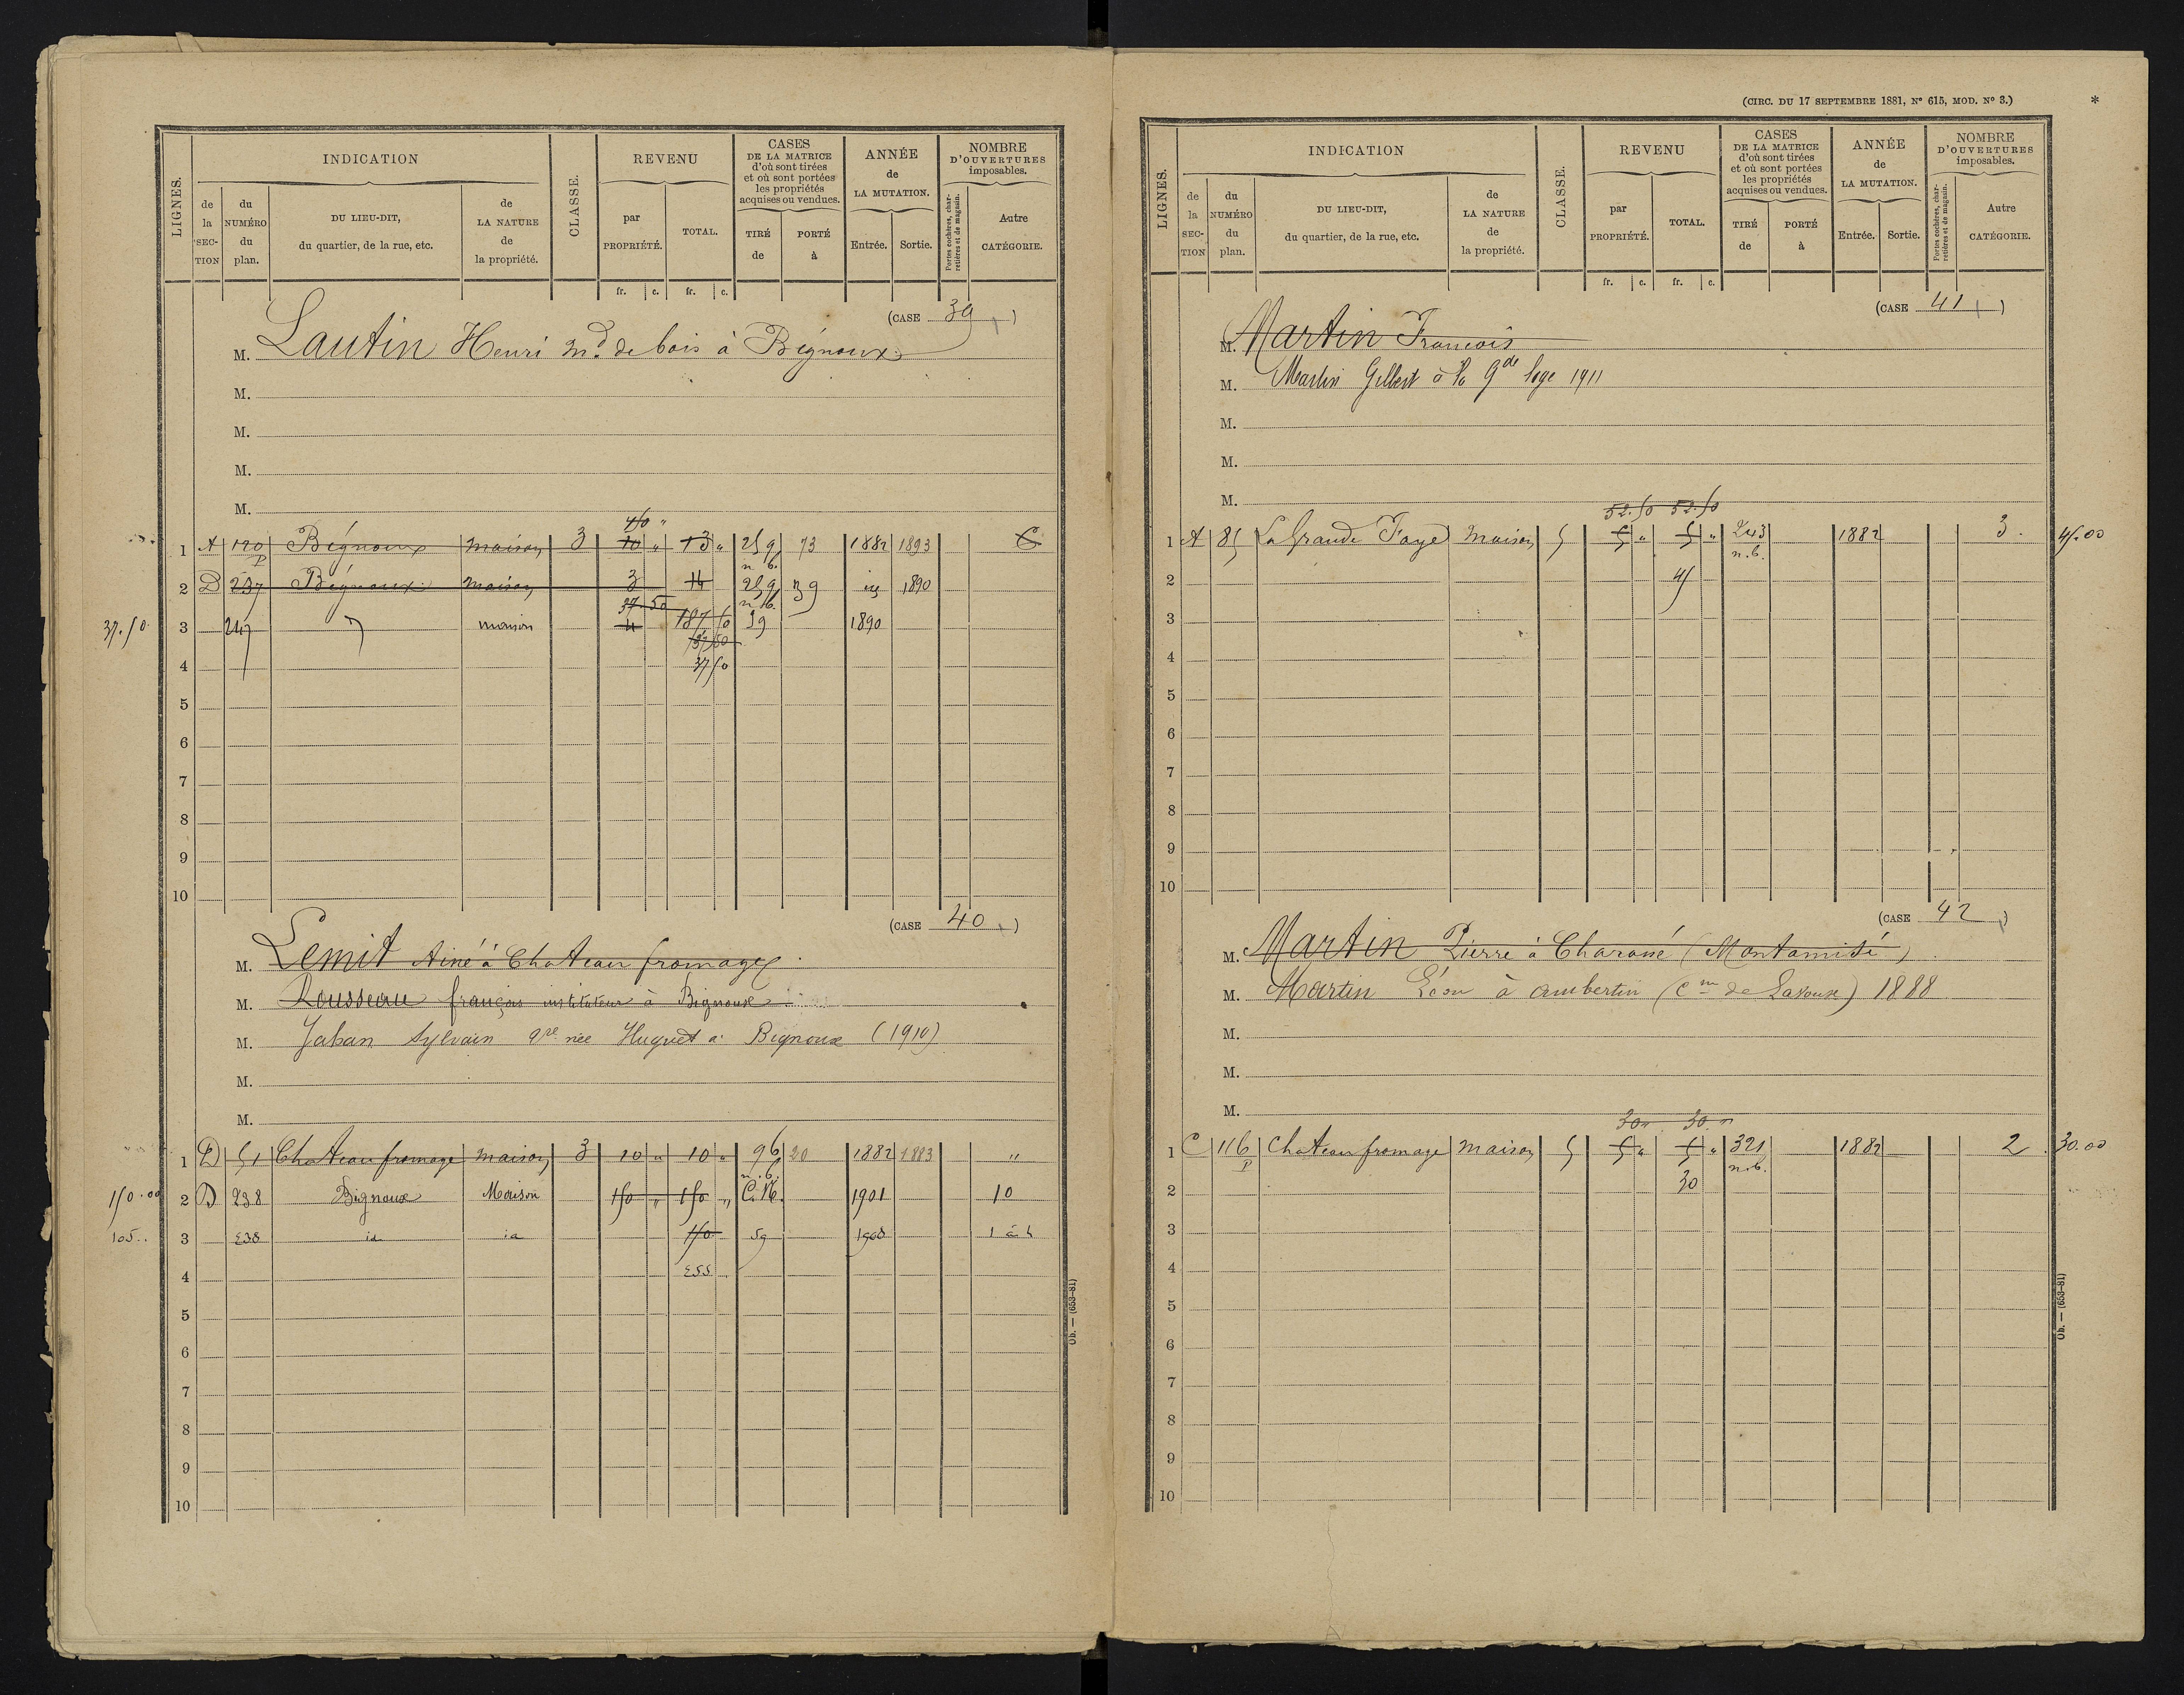 LIGNES.
INDICATION
de la SECTION
du NUMÉRO du plan.
DU LIEU-DIT, du quartier, de la rue, etc.
de LA NATURE de la propriété.
CLASSE.
REVENU
par PROPRIÉTÉ.
TOTAL.
CASES DE LA MATRICE d'où sont tirées et où sont portées les propriétés acquises ou vendues.
TIRÉ de
PORTÉ à
ANNÉE de LA MUTATION.
Entrée.
Sortie.
NOMBRE D'OUVERTURES imposables.
Portes cochères, charretières et de magasin.
Autre CATÉGORIE.
fr. c. fr. c.
(CASE 39)
M. Lautin Henri md de bois à Bignoux
M.
M.
M.
M.
1 A 120 p Bégnoux maison 3 10 " 13 " 259 n.b. 73 1882 1893 6
2 D 237 Bégnoux maison 3 14 259 n.b. 39 1890
37.50
37.50 3 247 maison 4 187 50 39 1890
4 37 50
5
6
7
8
9
10
(CASE 40)
M. Lemit Ainé à Chateau fromage
M. Rousseau françois instituteur à Bignoux
M. Jahan Sylvain née Huguet à Bignoux (1910)
M.
M.
1 D 51 Chateau fromage maison 3 10 " 10 " 96 n.b. 20 1882 1883 "
150.00 2 D 238 Bignoux Maison 150 " 150 " C.N. 1901 10
105.. 3 238 id id 150 59 1908
4 255
5
6
7
8
9
10
Ob. — (653-81)
(CIRC. DU 17 SEPTEMBRE 1881, N° 615, MOD. N° 3.) *
LIGNES.
INDICATION
de la SECTION
du NUMÉRO du plan.
DU LIEU-DIT, du quartier, de la rue, etc.
de LA NATURE de la propriété.
CLASSE.
REVENU
par PROPRIÉTÉ.
TOTAL.
CASES DE LA MATRICE d'où sont tirées et où sont portées les propriétés acquises ou vendues.
TIRÉ de
PORTÉ à
ANNÉE de LA MUTATION.
Entrée.
Sortie.
NOMBRE D'OUVERTURES imposables.
Portes cochères, charretières et de magasin.
Autre CATÉGORIE.
fr. c. fr. c.
(CASE 41)
M. Martin François
M. Martin Gilbert à la gde loge 1911
M.
M.
M.
52.50 52.50
1 A 85 La Grande Faye Maison 5 5 " 5 " 243 n.b. 1882 3. 45.00
2 45
3
4
5
6
7
8
9
10
(CASE 42)
M. Martin Pierre à Charassé (Montamisé)
M. Martin Léon à aubertin (Cne de Lavoux) 1888
M.
M.
M.
30 " 30 "
1 C 116 p Chateau fromage maison 5 5 " 5 " 321 n.b. 1882 2 30.00
2 30
3
4
5
6
7
8
9
10
Ob. — (653-81)